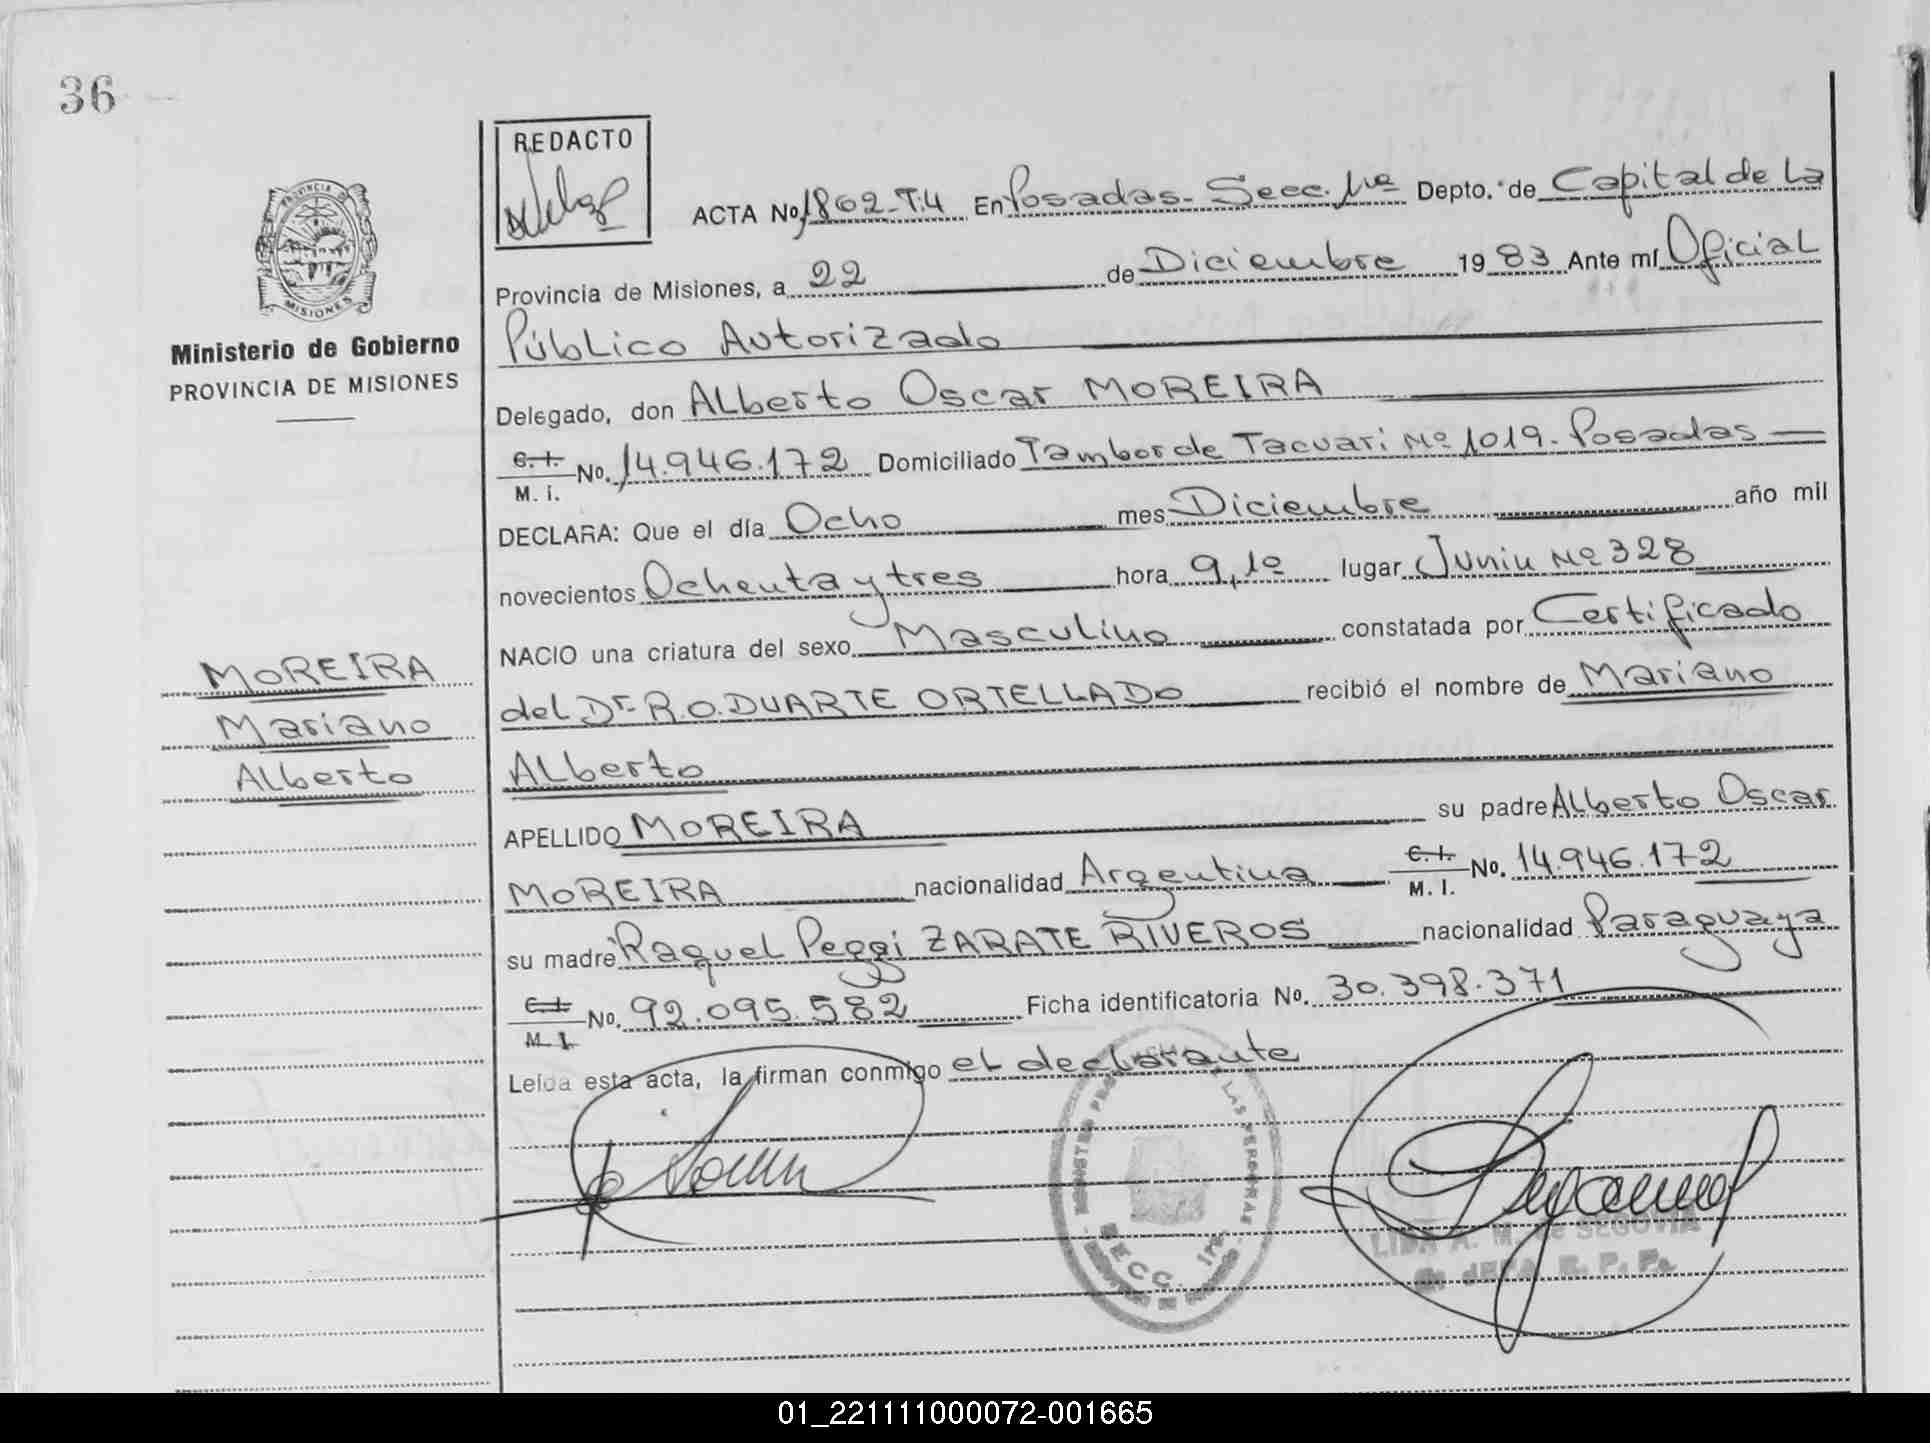 36
REDACTO
ACTA No. 1862-T.4 En Posadas- Secc. 1ra Depto. de Capital de La
Provincia de Misiones, a 22 de Diciembre 1983 Ante mí Oficial
Público Autorizado
PROVINCIA DE
MISIONES
Ministerio de Gobierno
PROVINCIA DE MISIONES
Delegado, don Alberto Oscar MOREIRA
C. I.
M. I. No. 14.946.172 Domiciliado Tambor de Tacuari Nº 1019- Posadas
DECLARA: Que el día Ocho mes Diciembre año mil
novecientos Ochenta y tres hora 9,10 lugar Junin Nº 328
NACIO una criatura del sexo Masculino constatada por Certificado
del Dr. R.O. DUARTE ORTELLADO recibió el nombre de Mariano
Alberto
MOREIRA
Mariano
Alberto
APELLIDO MOREIRA su padre Alberto Oscar
MOREIRA nacionalidad Argentina C. I.
M. I. No. 14.946.172
su madre Raquel Peggi ZARATE RIVEROS nacionalidad Paraguaya
C. I.
M. I. No. 92.095.582 Ficha identificatoria No. 30.398.371
Leída esta acta, la firman conmigo el declarante
REGISTRO LAS PERSONAS
SECC. 1ra.
LIDA A. M. de SEGOVIA
01_221111000072-001665